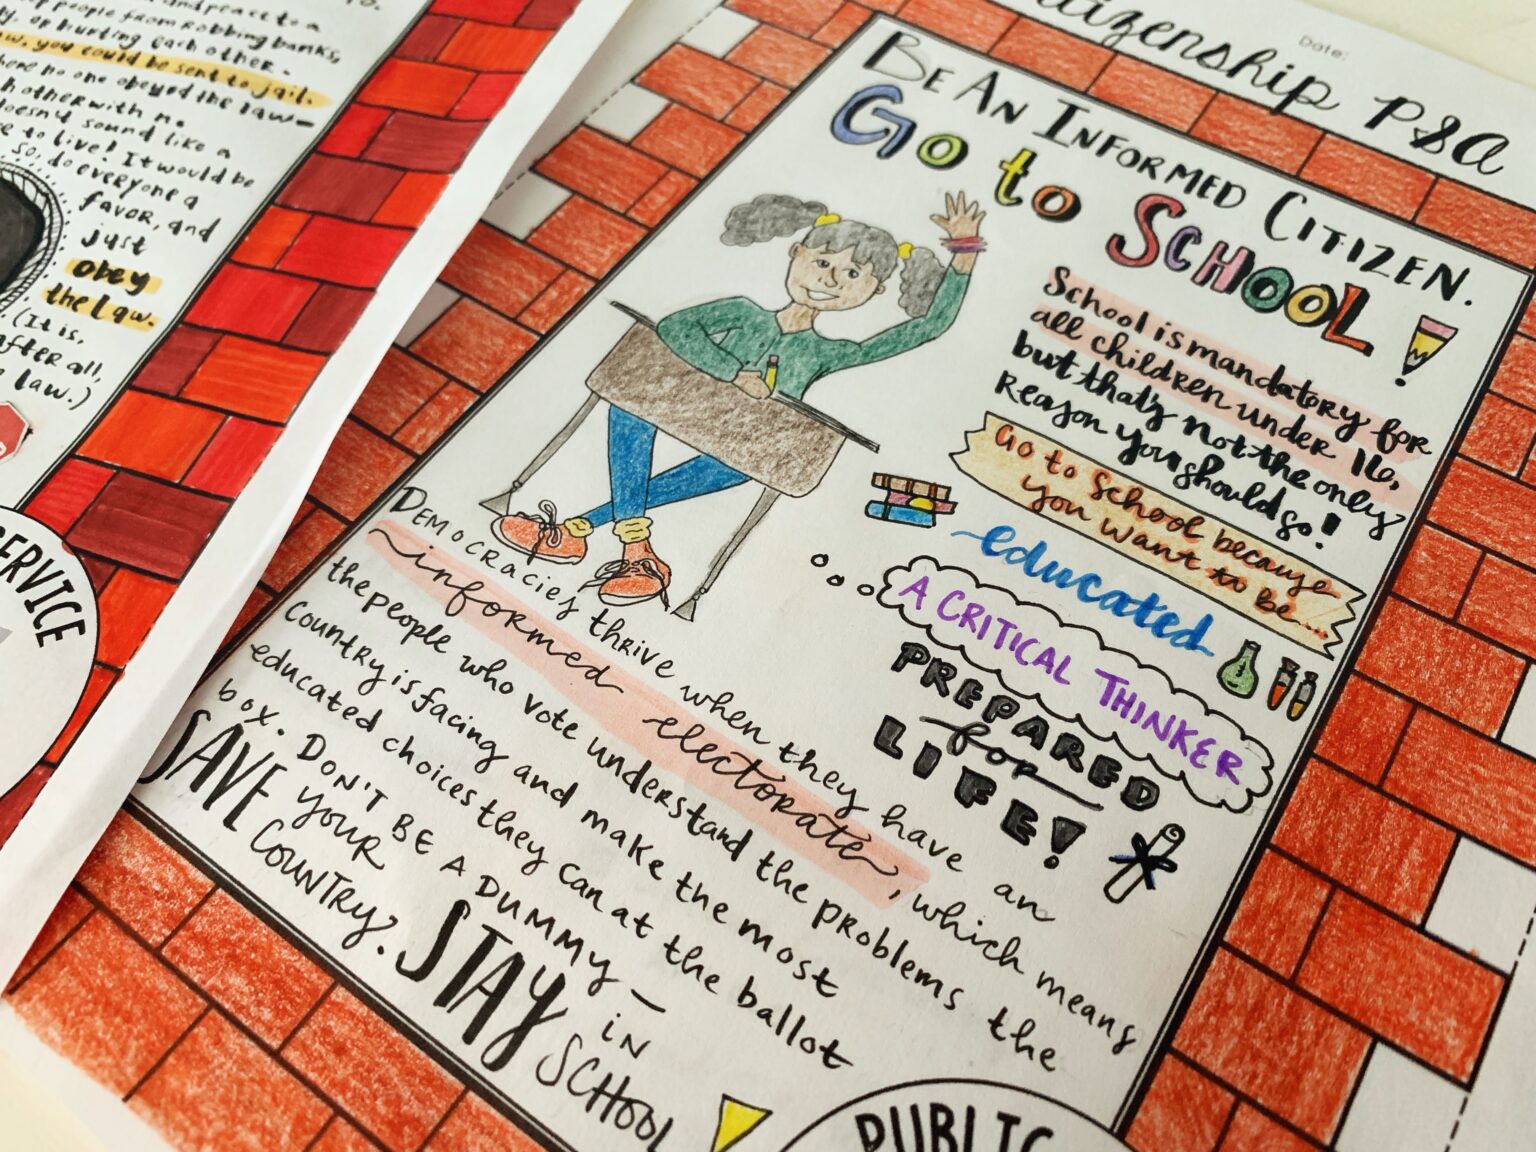 to a
people from Robbing banks,
or hurting each other.
law, you could be sent to jail.
where no one obeyed the law—
other with no
doesn't sound like a
to live! It would be
so, do everyone a
favor, and
just
obey
the law.
(It is,
after all,
law.)
SERVICE
Citizenship PSA
Date:
BE AN INFORMED CITIZEN.
GO to SCHOOL!
School is mandatory for
all children under 16,
but that's not the only
reason you should go!
Go to School because
you want to be...
educated
A CRITICAL THINKER
PREPARED
for
LIFE!
DEMOCRACIES thrive when they have an
informed electorate, which means
the people who vote understand the problems the
country is facing and make the most
educated choices they can at the ballot
box. DON'T BE A DUMMY—
SAVE YOUR COUNTRY. STAY IN SCHOOL
PUBLIC